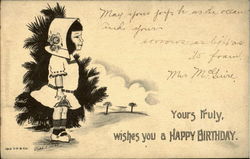 May your joys be as the ocean
your
sorrows as light as
its foam
Mrs McGuire
Yours truly,
wishes you a HAPPY BIRTHDAY.